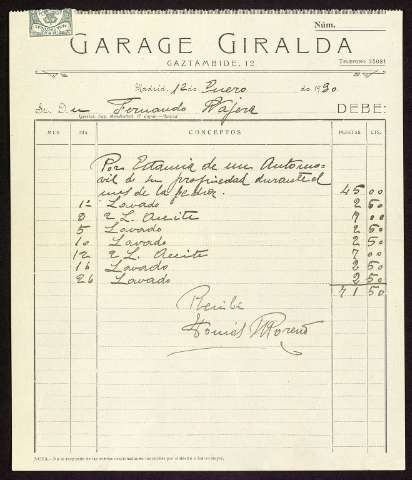 Núm.
GARAGE GIRALDA
GAZTAMBIDE, 12
TELÉFONO 35081
Madrid, 12 de Enero de 1930
Sr. D. Fernando DEBE:
MES DÍA CONCEPTOS PESETAS CTS.
Por Estancia de un Automo-
vil de su propiedad durante el
mes de la fecha. 45 00
1º Lavado 2 50
2 2 L. Aceite 7 00
5 Lavado 2 50
10 Lavado 2 50
12 2 L. Aceite 7 00
16 Lavado 2 50
26 Lavado 2 50
71 50
Recibí
Tomás Moreno